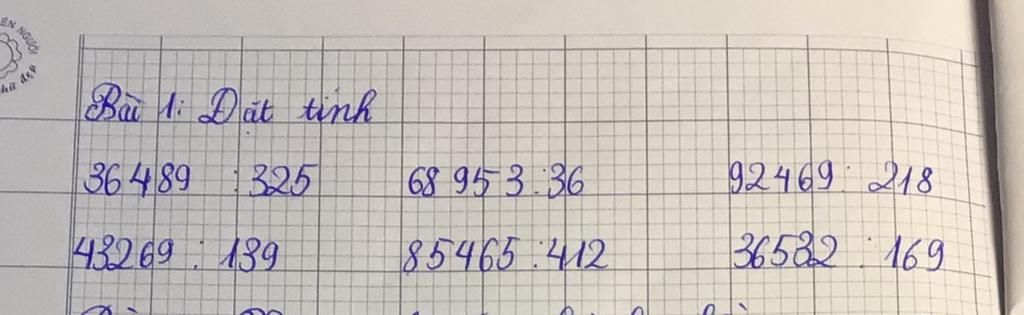 ÊN NGƯỜI
chữ đẹp
Bài 1: Đặt tính
36489 : 325 68953 : 36 92469 : 218
43269 : 139 85465 : 412 36532 : 169